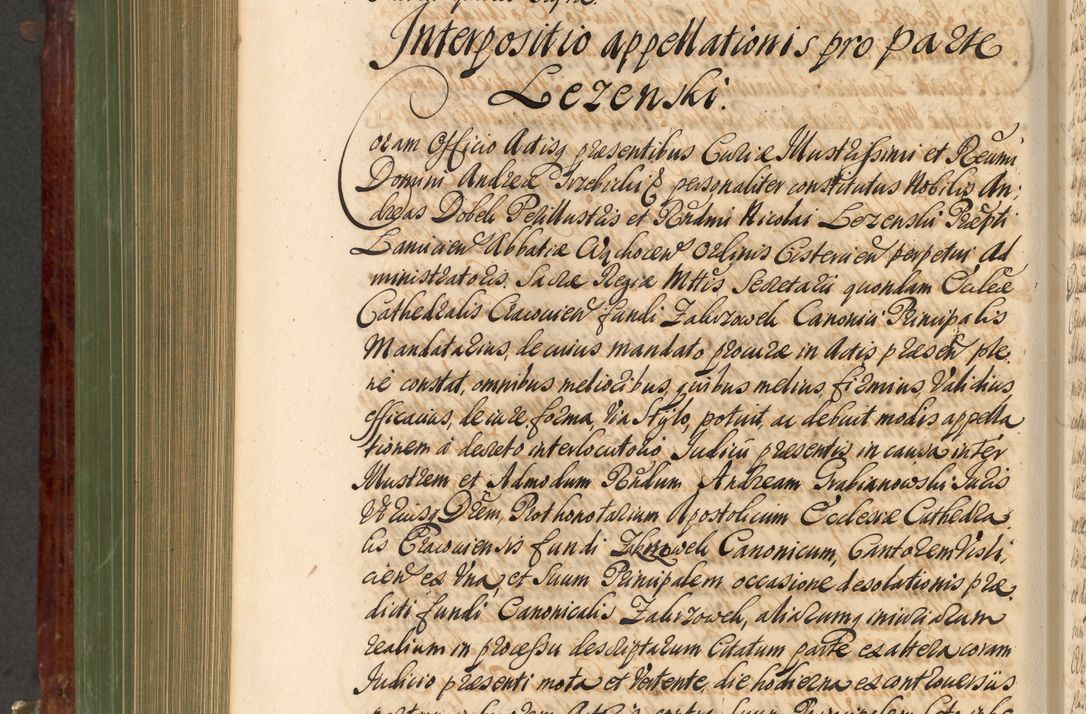 Interpositio appellationis pro parte
Lezenski.
Coram Officio Actisq presentibus Curiæ Illustrissimi et Reũmi
Domini Andreæ Trzebicki &c personaliter constitutus Nobilis An:
dreas Dobek Perillustris et Rñdmi Nicolai Lezenski Præpti
Lancicien Abbatiæ Ordinis Cistercien perpetui Ad
ministratoris, Sacræ Regiæ Mttis Secretarii quondam Ecclæ
Cathedralis Cracovien fundi Zakrzowek Canonici Principalis
Mandatarius, de cuius mandato procuræ in Actis præsen ple
ne constat, omnibus melioribus, quibus melius, firmius, Validius
efficacius, de iure, forma, Via Stylo, potuit, ac debuit modis appella
tionem à decreto interlocutorio Judicii præsentis in causa inter
Illustrem et Admodum Rñdum Andream Grabianowski Juris
Utriusq Drem, Prothonotarium Apostolicum Ecclesiæ Cathedra
lis Cracoviensis fundi Zakrzowek Canonicum, Cantorem Visli
cien ex Vna, et Suum Principalem occasione desolationis præ
dicti fundi Canonicalis Zakrzowek, aliarumq iniuriarum
realium in processu descriptarum Citatum parte ex altera coram
Judicio præsenti mota et Vertente, die hodierna ex controversiis